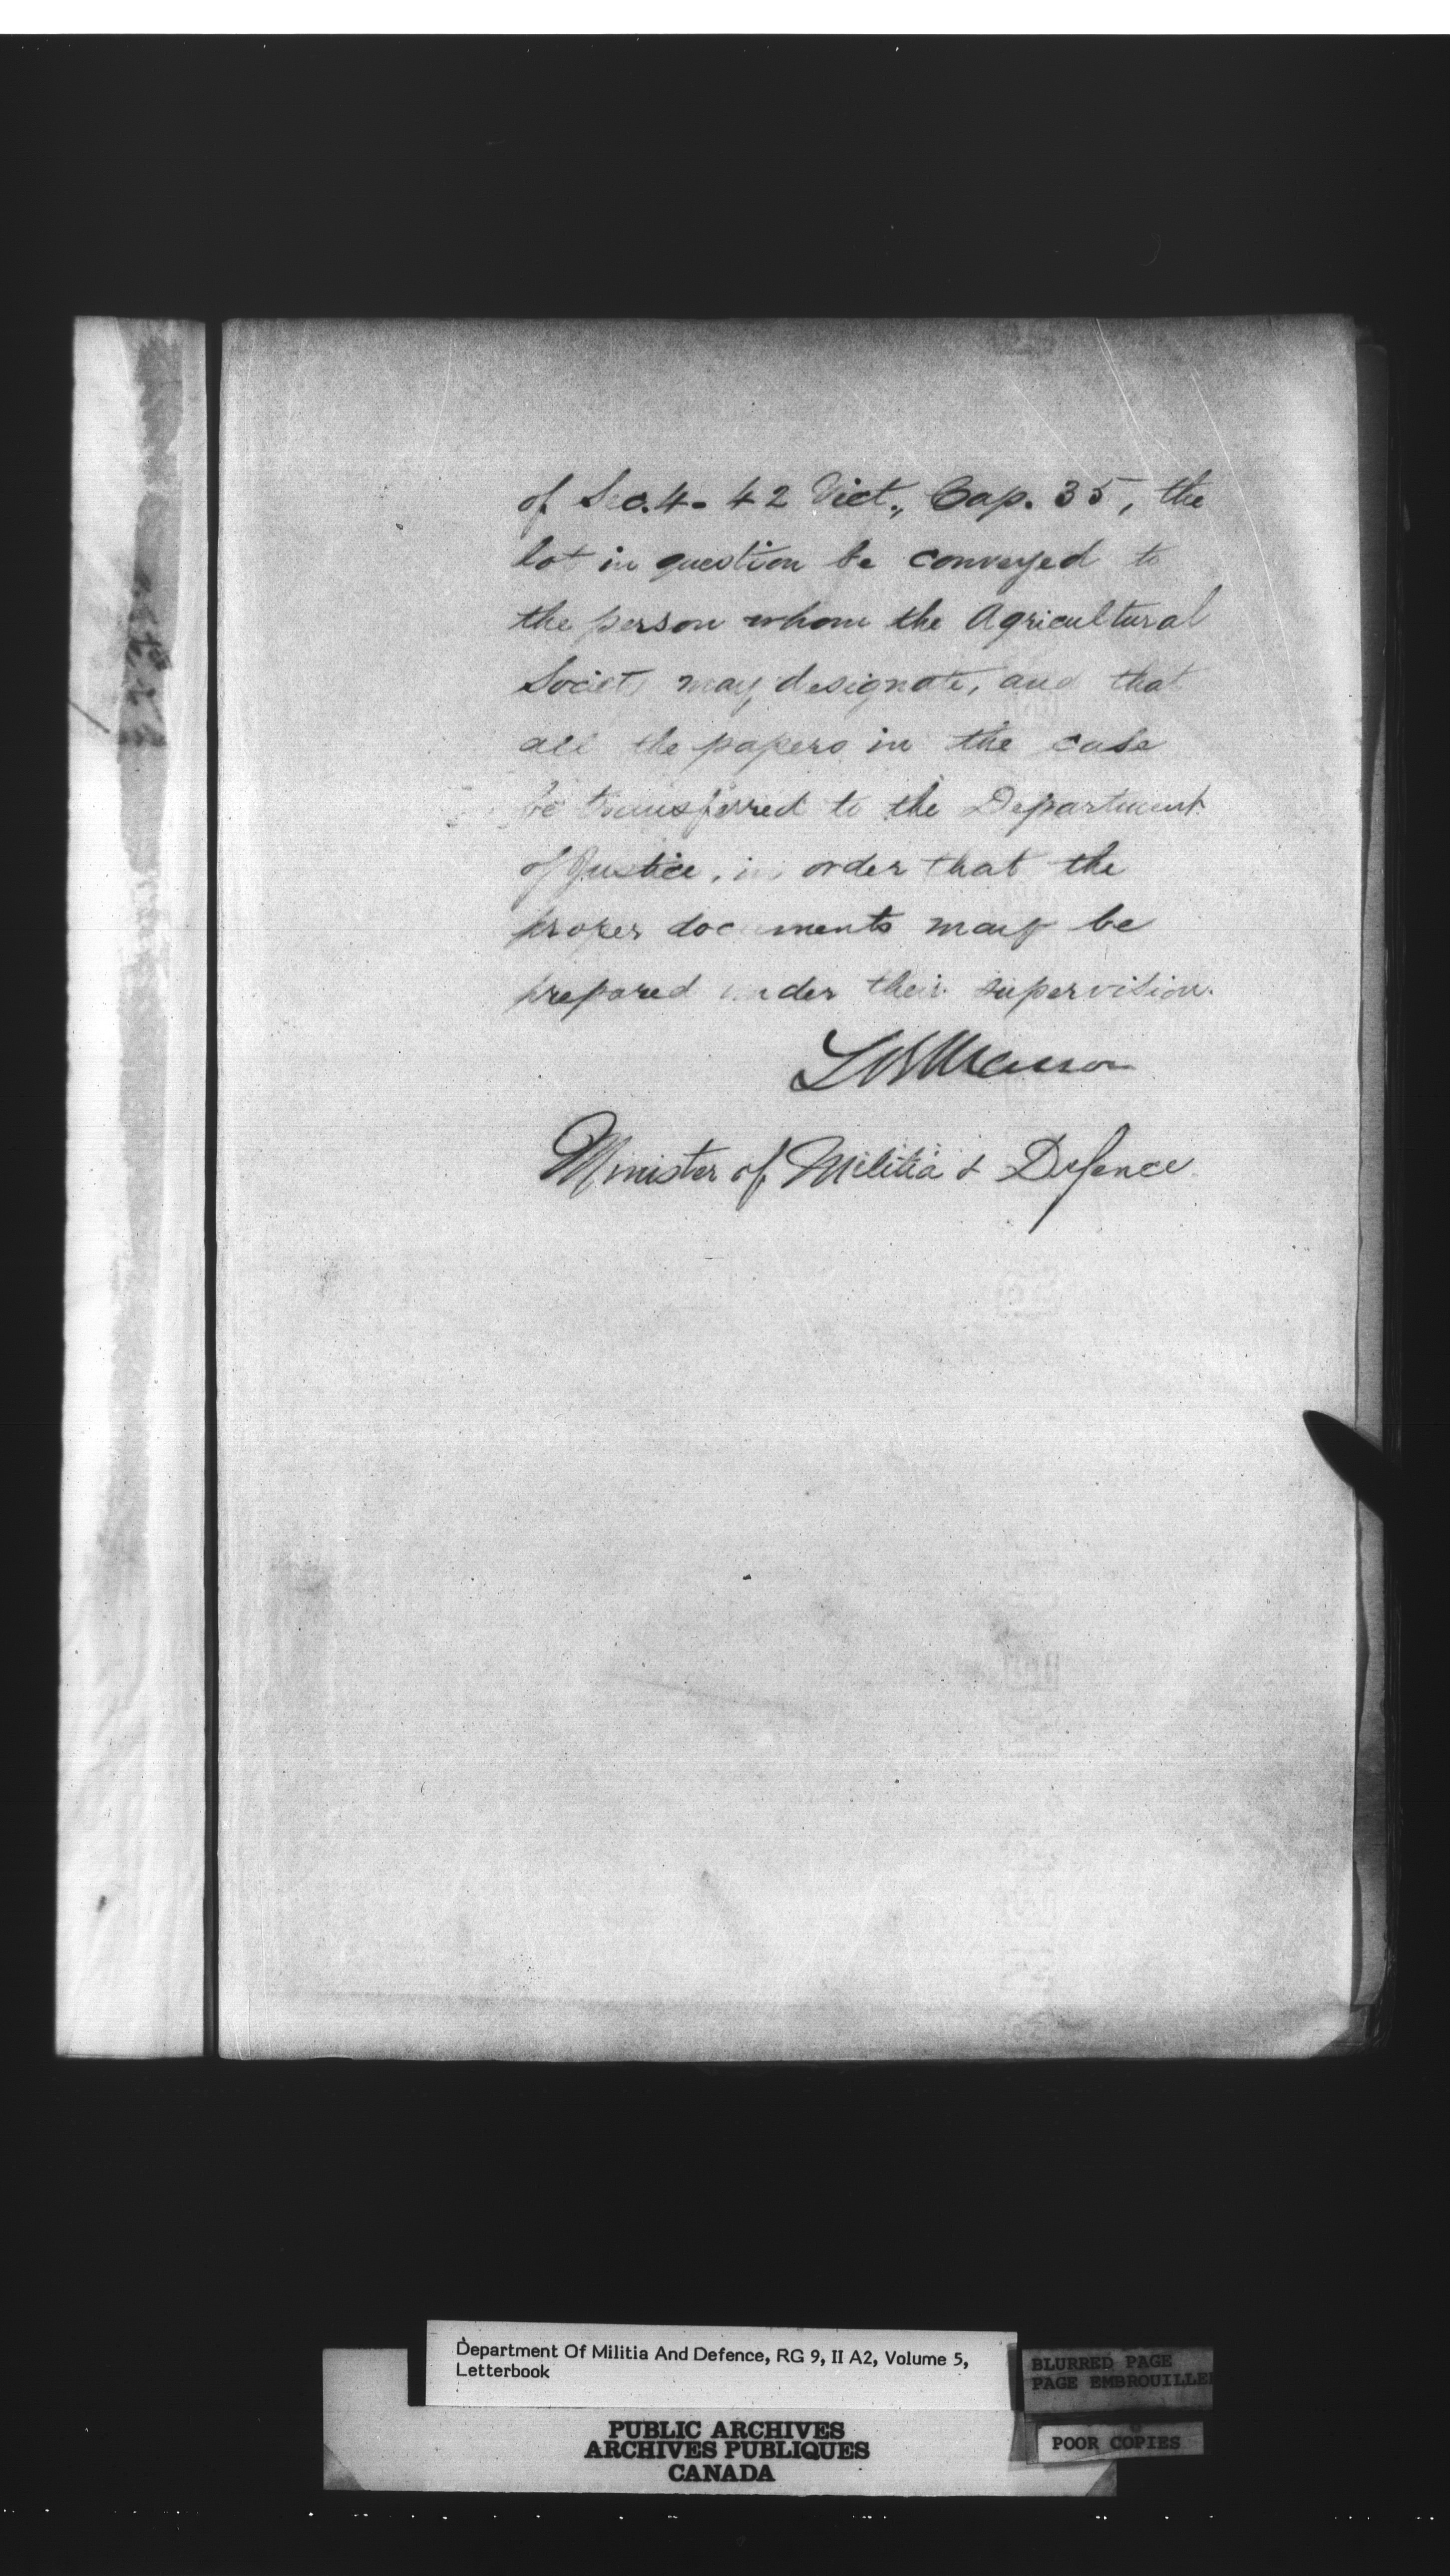 of Sec. 4 - 42 Vict., Cap. 35, the
lot in question be conveyed to
the person whom the Agricultural
Society may designate, and that
all the papers in the case
be transferred to the Department
of Justice, in order that the
proper documents may be
prepared under their supervision.
Masson
Minister of Militia & Defence.
Department Of Militia And Defence, RG 9, II A2, Volume 5,
Letterbook
BLURRED PAGE
PAGE EMBROUILLEE
POOR COPIES
PUBLIC ARCHIVES
ARCHIVES PUBLIQUES
CANADA